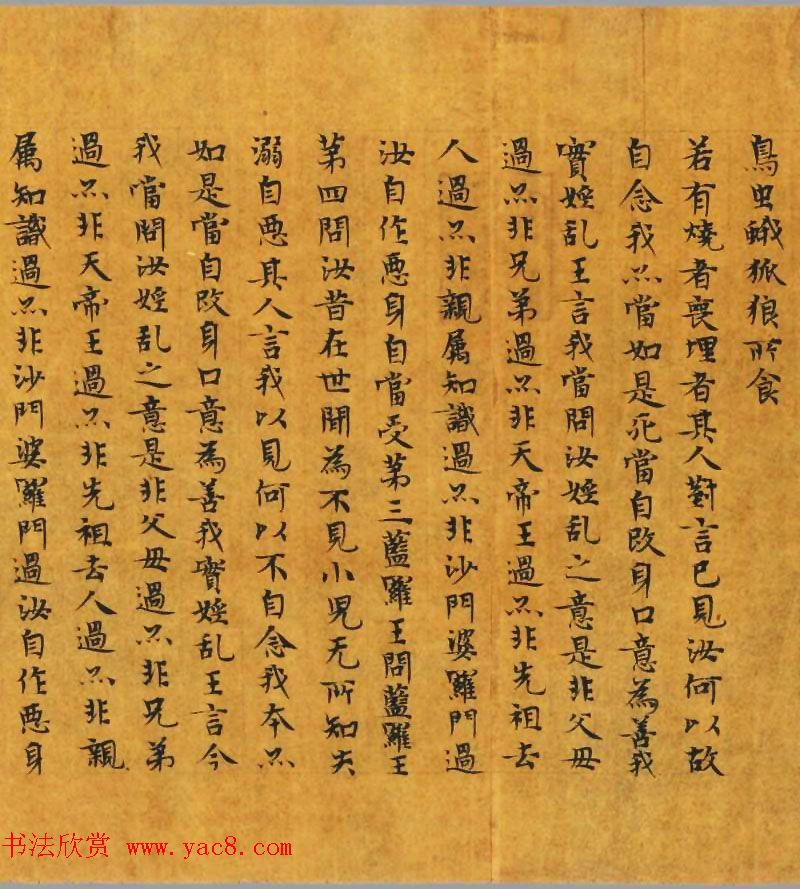 鳥虫蛾狐狼所食
若有燒者喪埋者其人對言已見汝何以故
自念我亦當如是死當自改身口意為善我
實婬乱王言我當問汝婬乱之意是非父母
過亦非兄弟過亦非天帝王過亦非先祖去
人過亦非親属知識過亦非沙門婆羅門過
汝自作惡身自當受第三藍羅王問藍羅王
第四問汝昔在世間為不見小児无所知夫
溺自惡其人言我以見何以不自念我本亦
如是當自改身口意為善我實婬乱王言今
我當問汝婬乱之意是非父母過亦非兄弟
過亦非天帝王過亦非先祖去人過亦非親
属知識過亦非沙門婆羅門過汝自作惡身
书法欣赏 www.yac8.com